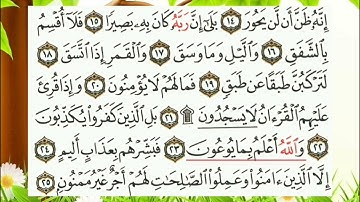 إِنَّهُۥ ظَنَّ أَن لَّن يَحُورَ ١٤ بَلَىٰٓ إِنَّ رَبَّهُۥ كَانَ بِهِۦ بَصِيرًا ١٥ فَلَآ أُقْسِمُ
بِٱلشَّفَقِ ١٦ وَٱلَّيْلِ وَمَا وَسَقَ ١٧ وَٱلْقَمَرِ إِذَا ٱتَّسَقَ ١٨
لَتَرْكَبُنَّ طَبَقًا عَن طَبَقٍ ١٩ فَمَا لَهُمْ لَا يُؤْمِنُونَ ٢٠ وَإِذَا قُرِئَ
عَلَيْهِمُ ٱلْقُرْءَانُ لَا يَسْجُدُونَ ۩ ٢١ بَلِ ٱلَّذِينَ كَفَرُوا۟ يُكَذِّبُونَ
٢٢ وَٱللَّهُ أَعْلَمُ بِمَا يُوعُونَ ٢٣ فَبَشِّرْهُم بِعَذَابٍ أَلِيمٍ ٢٤
إِلَّا ٱلَّذِينَ ءَامَنُوا۟ وَعَمِلُوا۟ ٱلصَّـٰلِحَـٰتِ لَهُمْ أَجْرٌ غَيْرُ مَمْنُونٍۭ ٢٥